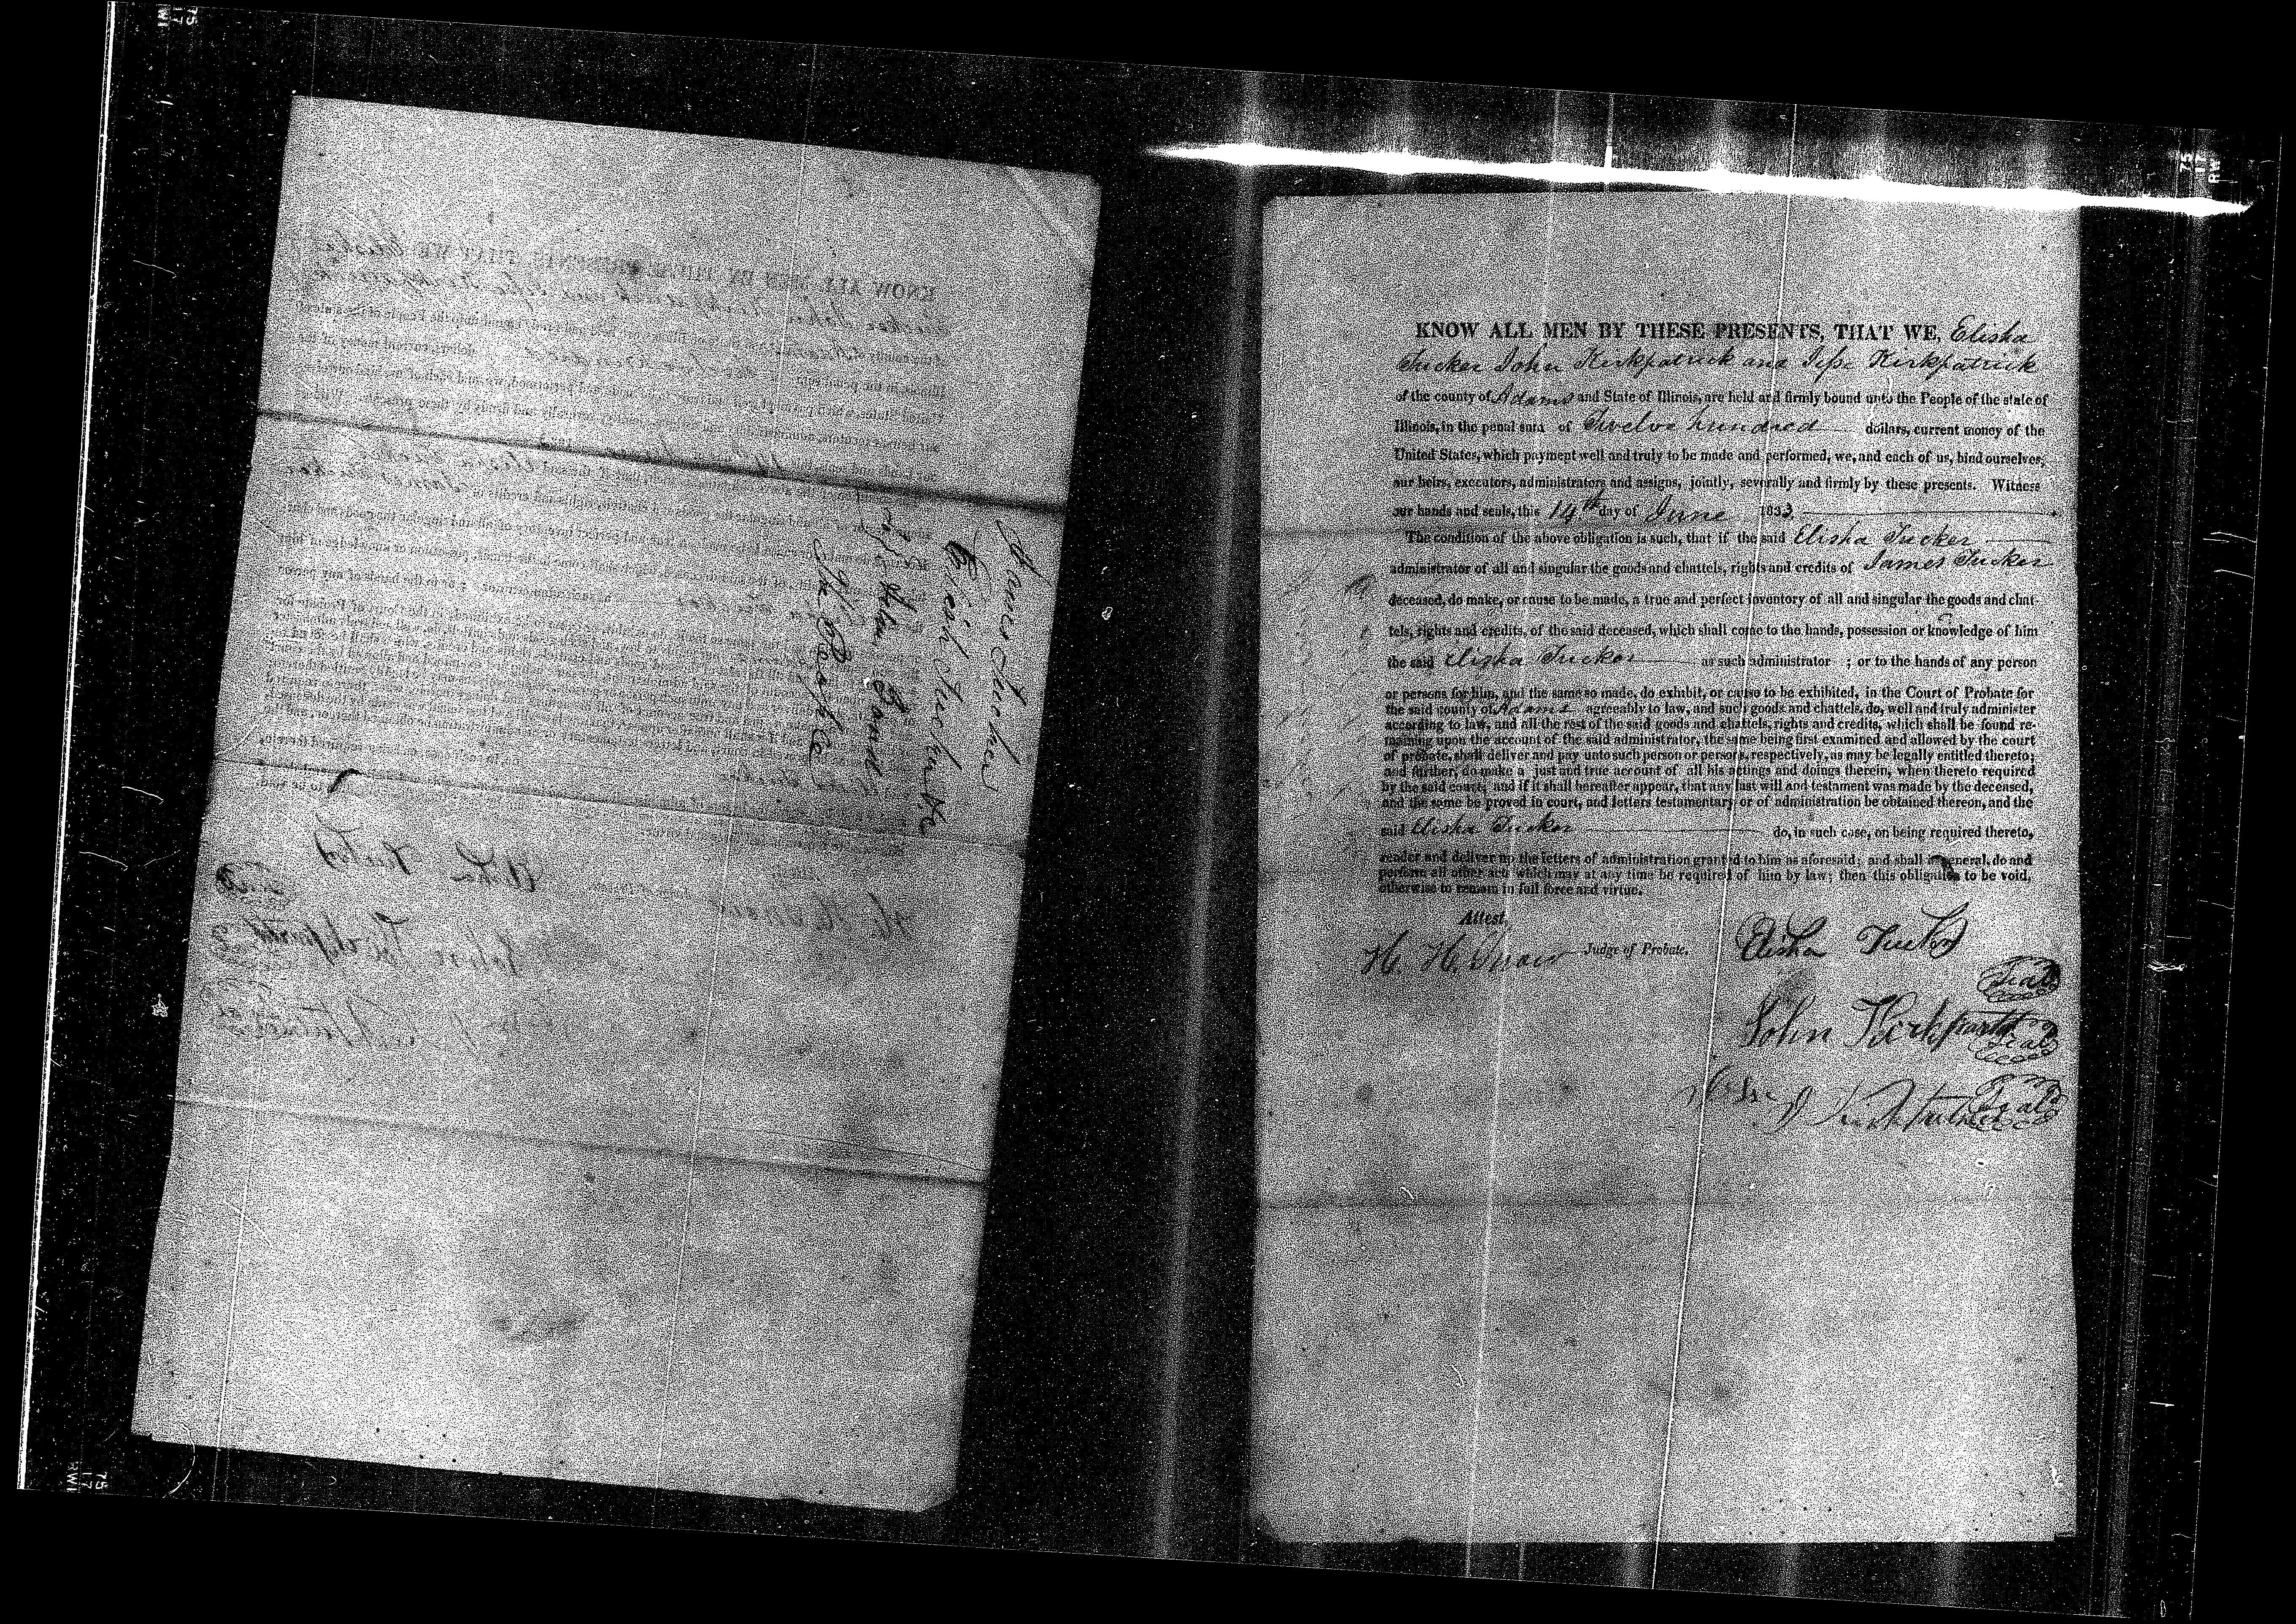 James Tucker
Elisha Tucker
Bond
KNOW ALL MEN BY THESE PRESENTS, THAT WE, Elisha
Tucker John Kirkpatrick and Jesse Kirkpatrick
of the county of Adams and State of Illinois, are held and firmly bound unto the People of the state of
Illinois, in the penal sum of Twelve hundred dollars, current money of the
United States, which payment well and truly to be made and performed, we, and each of us, bind ourselves,
our heirs, executors, administrators and assigns, jointly, severally and firmly by these presents. Witness
our hands and seals, this 14th day of June 1833.
The condition of the above obligation is such, that if the said Elisha Tucker
administrator of all and singular the goods and chattels, rights and credits of James Tucker
deceased, do make, or cause to be made, a true and perfect inventory of all and singular the goods and chat-
tels, rights and credits, of the said deceased, which shall come to the hands, possession or knowledge of him
the said Elisha Tucker as such administrator ; or to the hands of any person
or persons for him, and the same so made, do exhibit, or cause to be exhibited, in the Court of Probate for
the said county of Adams agreeably to law, and such goods and chattels, do, well and truly administer
according to law, and all the rest of the said goods and chattels, rights and credits, which shall be found re-
maining upon the account of the said administrator, the same being first examined and allowed by the court
of probate, shall deliver and pay unto such person or persons, respectively, as may be legally entitled thereto;
and further, do make a just and true account of all his actings and doings therein, when thereto required
by the said court; and if it shall hereafter appear, that any last will and testament was made by the deceased,
and the same be proved in court, and letters testamentary or of administration be obtained thereon, and the
said Elisha Tucker do, in such case, on being required thereto,
render and deliver up the letters of administration granted to him as aforesaid; and shall in general, do and
perform all other acts which may at any time be required of him by law; then this obligation to be void,
otherwise to remain in full force and virtue.
Attest,
H. H. Snow Judge of Probate.
Elisha Tucker
Seal
John Kirkpatrick Seal
Jesse Kirkpatrick Seal